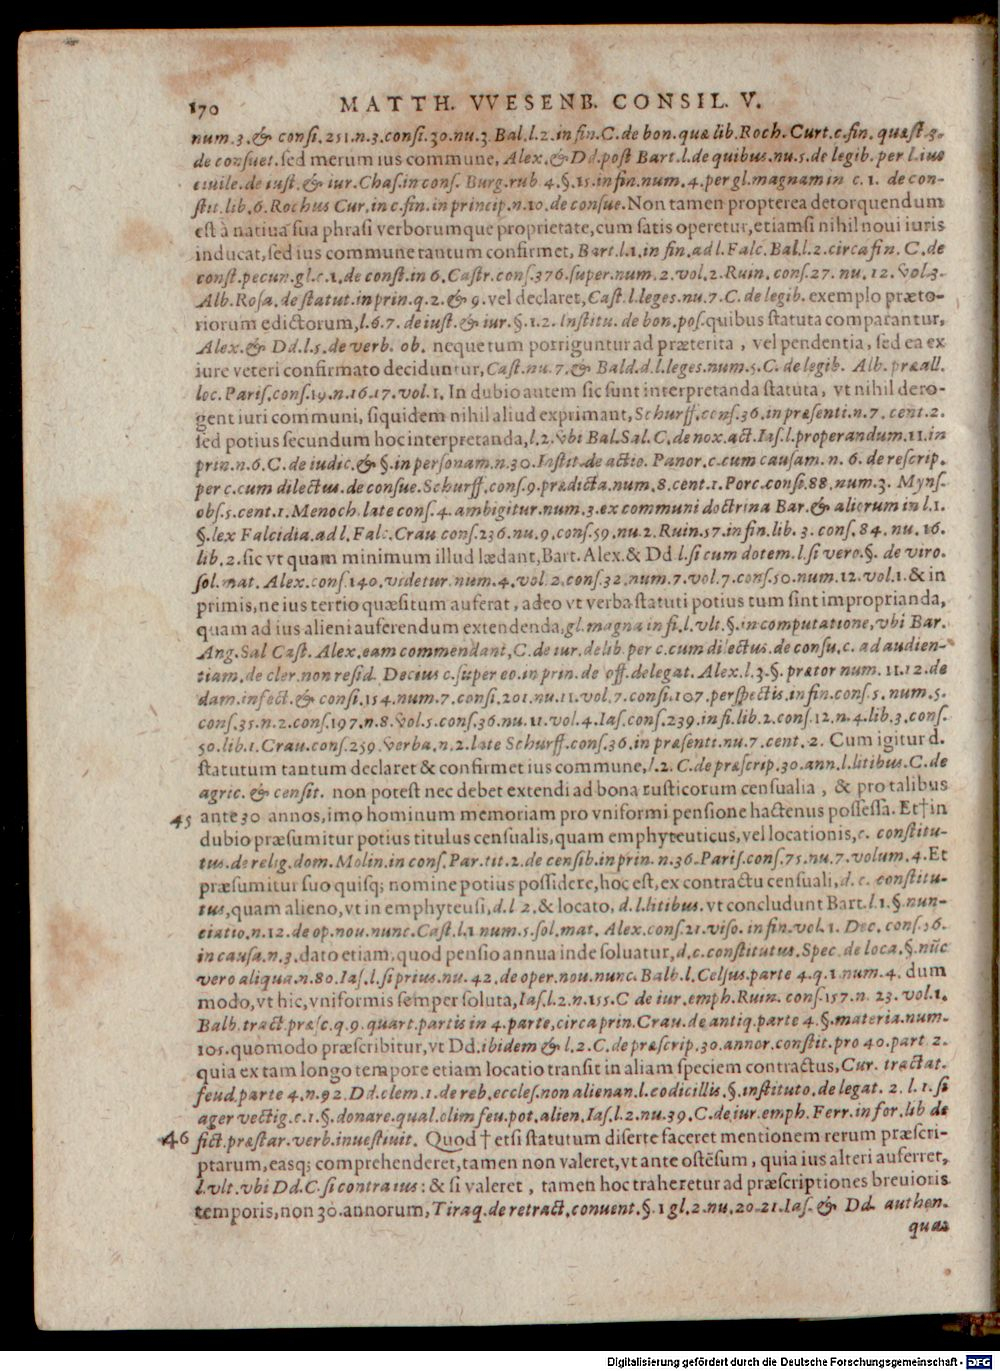 170 MATTH. VVESENB. CONSIL. V.
num.3.& consi.251.n.3.consi.30.nu.3 Bal.l.2.in fin.C.de bon.quæ lib.Roch.Curt.c.fin.quæst 3.
de consuet.sed merum ius commune, Alex.& Dd.post Bart.l.de quibus.nu.5.de legib.per l.ius
ciuile.de iust.& iur.Chas.in cons. Burg.rub 4.§.15.in fin.num.4.per gl.magnam in c.1. de con-
stit.lib.6.Rochus Cur.in c.fin.in princip.n.10.de consue.Non tamen propterea detorquendum
est à natiua sua phrasi verborumque proprietate,cum satis operetur,etiamsi nihil noui iuris
inducat,sed ius commune tantum confirmet, Bart.l.1.in fin.ad l.Falc.Bal.l.2.circa fin. C.de
const.pecun.gl.c.1.de const.in 6.Castr.cons.376.super.num.2.vol.2.Ruin.cons.27.nu.12.vol.3.
Alb.Rosa.de statut.in prin.q.2.& 9.vel declaret,Cast.l.leges.nu.7.C.de legib. exemplo præto-
riorum edictorum,l.6.7.de iust.& iur.§.1.2.Institu.de bon.pos.quibus statuta comparantur,
Alex.& Dd.l.5.de verb. ob. neque tum porriguntur ad præterita, vel pendentia, sed ea ex
iure veteri confirmato deciduntur,Cast.nu.7.& Bald.d.l.leges.num.5.C.de legib. Alb.præall.
loc.Paris.cons.19.n.16.17.vol.1.In dubio autem sic sunt interpretanda statuta, vt nihil dero-
gent iuri communi, siquidem nihil aliud exprimant,Schurff.cons.36.in præsenti.n.7.cent.2.
sed potius secundum hoc interpretanda,l.2.vbi Bal.Sal.C.de nox.act.Ias.l.properandum.11.in
prin.n.6.C.de iudic.& §.in personam.n.30.Instit.de actio. Panor.c.cum causam.n. 6.de rescrip.
per c.cum dilectus.de consue.Schurff.cons.9.prædicta.num.8.cent.1.Porc.consi.88.num.3. Myns.
obs.5.cent.1.Menoch.late cons.4.ambigitur.num.3.ex communi doctrina Bar.& aliorum in l.1.
§.lex Falcidia.ad l. Falc.Crau cons.236.nu.9.cons.59.nu.2.Ruin.57.in fin.lib. 3.cons.84.nu.16.
lib.2.sic vt quam minimum illud lædant,Bart.Alex.& Dd l.si cum dotem.l.si vero.§. de viro.
sol.mat. Alex.cons.140.videtur.num.4.vol 2.cons.32.num.7.vol.7.cons.50.num.12.vol.1.& in
primis,ne ius tertio quæsitum auferat, adeo vt verba statuti potius tum sint improprianda,
quam ad ius alieni auferendum extendenda,gl.magna in fi.l.vlt.§.in computatione,vbi Bar.
Ang.Sal Cast.Alex.eam commendant,C.de iur.delib.per c.cum dilectus.de consu.c. ad audien-
tiam.de cler.non resid. Decius c.super eo.in prin.de off.delegat. Alex.l.3.§.prætor num.11.12.de
dam.infect.& consi.154.num.7.consi.201.nu.11.vol.7.consi.107.perspectis.in fin.cons.5.num.5.
cons.35.n.2.cons.197.n.8.vol.5.cons.36.nu.11.vol.4.Ias.cons.239.in fi.lib.2.cons.12.n.4.lib.3.cons.
50.lib.1.Crau.cons.259.verba.n.2.late Schurff.cons.36.in præsenti.nu.7.cent.2. Cum igitur d.
statutum tantum declaret & confirmet ius commune,l.2.C.de præscrip.30.ann.l.litibus.C.de
agric.& censit. non potest nec debet extendi ad bona rusticorum censualia, & pro talibus
45 ante 30 annos,imo hominum memoriam pro vniformi pensione hactenus possessa. Et†in
dubio præsumitur potius titulus censualis,quam emphyteuticus,vel locationis,c. constitu-
tus.de relig.dom.Molin.in cons.Par.tit.2.de censib.in prin.n.36.Paris.cons.75.nu.7.volum.4.Et
præsumitur suo quisq; nomine potius possidere,hoc est,ex contractu censuali,d.c. constitu-
tus,quam alieno,vt in emphyteusi,d.l 2.& locato, d.l.litibus.vt concludunt Bart.l.1.§.nun-
ciatio.n.12.de op.nou.nunc.Cast.l.1 num.5.sol.mat. Alex.cons.21.viso.in fin.vol.1. Dec.cons.56.
in causa.n.3.dato etiam,quod pensio annua inde soluatur,d.c.constitutus.Spec.de loca.§.nūc
vero aliqua.n.80.Ias.l.si prius.nu.42.de oper.nou.nunc.Balb.l.Celsus.parte 4.q.1.num.4. dum
modo,vt hic,vniformis semper soluta,Ias.l.2.n.155.C de iur.emph.Ruin. cons.157.n. 23.vol.1.
Balb.tract præsc.q.9.quart.partis in 4.parte,circa prin.Crau.de antiq.parte 4.§.materia.num.
105.quomodo præscribitur,vt Dd.ibidem & l.2.C.de præscrip.30.annor.constit.pro 40.part 2.
quia ex tam longo tempore etiam locatio transit in aliam speciem contractus,Cur. tractat.
feud.parte 4.n.92.Dd.clem.1.de reb.eccles.non alienan.l.codicillis.§.instituto.de legat. 2. l.1.si
ager vectig.c.1.§.donare.qual.olim feu.pot.alien.Ias.l.2.nu.39.C.de iur.emph.Ferr.in for.lib de
46 fict.præstar.verb.inuestiuit. Quod†etsi statutum diserte faceret mentionem rerum præscri-
ptarum,easq; comprehenderet,tamen non valeret,vt ante ostēsum, quia ius alteri auferret,
l.vlt.vbi Dd.C.si contra ius: & si valeret, tamen hoc traheretur ad præscriptiones breuioris
temporis,non 30.annorum,Tiraq.de retract.conuent.§.1 gl.2.nu.20.21.Ias.& Dd. authen.
quas
Digitalisierung gefördert durch die Deutsche Forschungsgemeinschaft - DFG